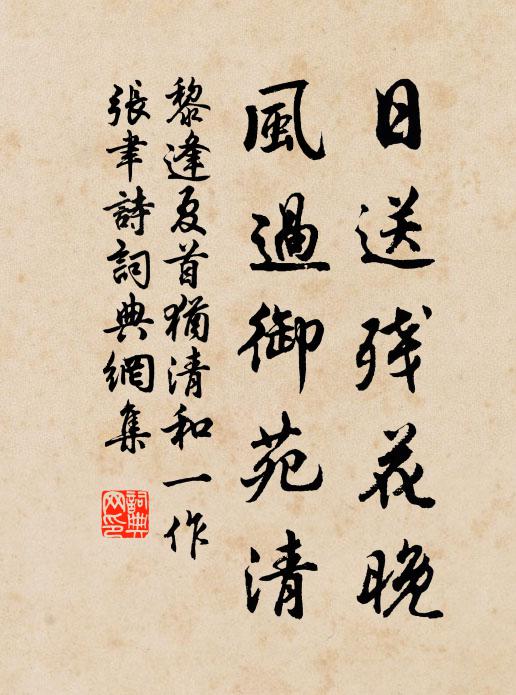 日送残花晚
風過御苑清
黎逢夏首猶清和一作
張聿詩詞典網集
詞典
网印